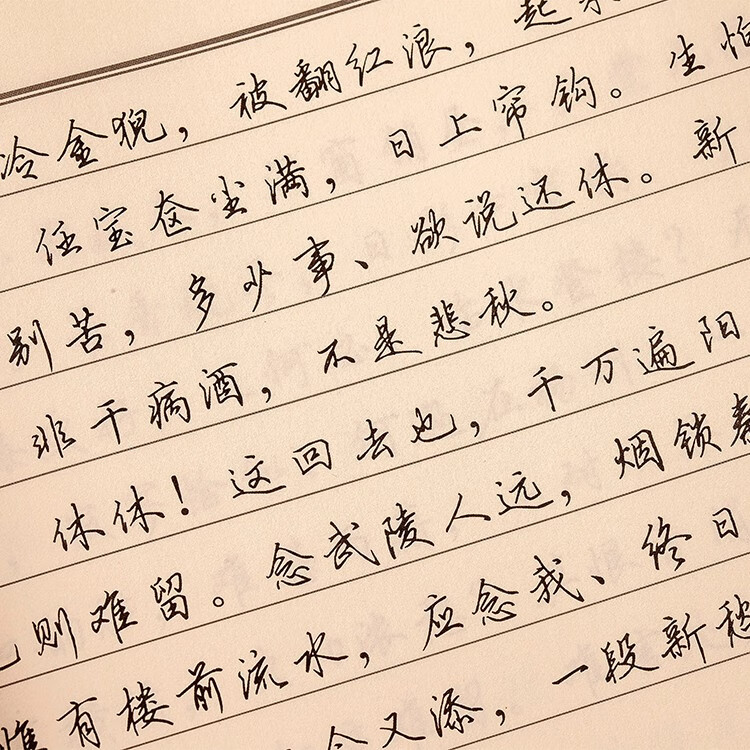 冷金猊，被翻红浪，起
任宝奁尘满，日上帘钩。生怕
别苦，多少事、欲说还休。新
非干病酒，不是悲秋。
休休！这回去也，千万遍阳
则难留。念武陵人远，烟锁秦
惟有楼前流水，应念我、终日
今又添，一段新愁